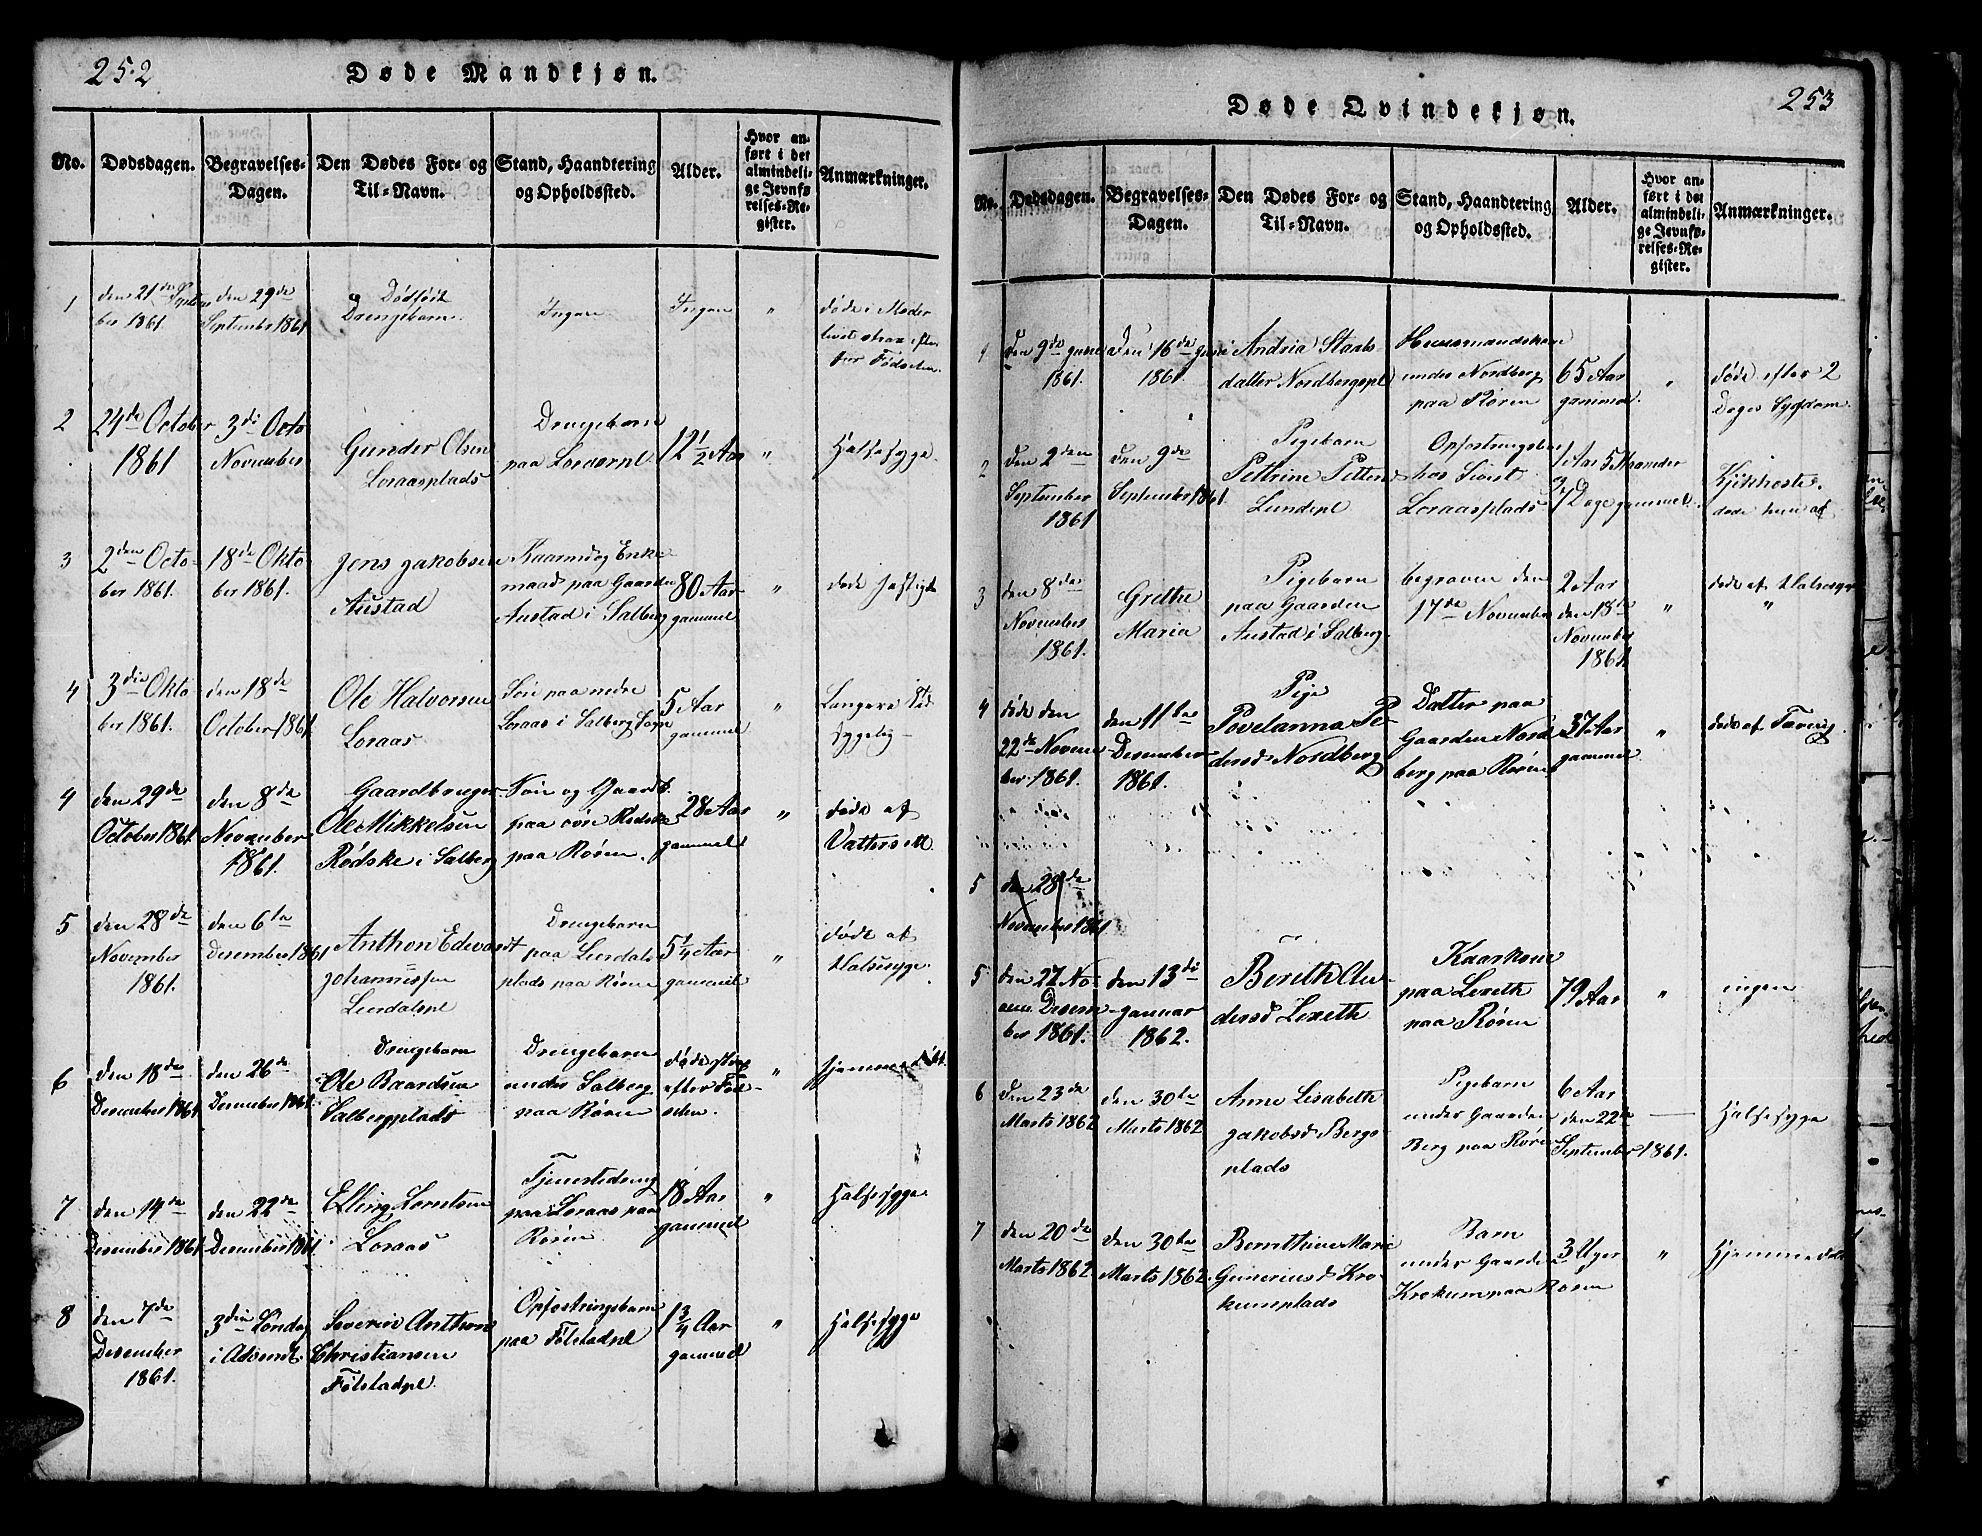 252
Døde Mandkjøn.
No. Dødsdagen. Begravelses-Dagen. Den Dødes For- og Til-Navn. Stand, Haandtering og Opholdssted. Alder. Hvor anført i det almindelige Jevnførelses-Register. Anmærkninger.
1 den 21de September 1861. den 29de September 1861 Dødfødt Drengebarn. Ingen Ingen " døde i Moderlivet strax efter Fødselen.
2 24de October 1861 3die Octo November Gunder Olsen Loraasplads Drengebarn paa Loraaspl. 12 1/2 Aar " Halsesyge.
3 2den October 1861. 18de Oktober 1861. Jens Jakobsen Austad Kaarmd og Enkemand paa Gaarden Austad i Salberg 80 Aar gammel " døde hastigt
4 3die Oktober 1861. den 18de October 1861 Ole Halvorsen Loraas Søn paa nedre Loraas i Salberg Sogn 5 Aar gammel " Langere Tid sygelig
4 den 29de October 1861 den 8de November 1861. Gaardbruger Ole Mikkelsen Rødske i Salberg Søn og Gaardb. paa øvre Rødske paa Røren. 28 Aar gammel " døde af Vattersott
5 den 28de November 1861. den 6te Desember 1861 Anthon Edvardt Johannessen Leerdalspl Drengebarn paa Leerdalsplads paa Røren 5 1/4 Aar gammel " døde af Halsesyge.
6 den 18de Desember 1861 den 26de Desember 1861. Drengebarn Ole Baardsen Salbergplads Drengebarn under Salberg paa Røren døde strax efter Fødselen. " hjemmedøbt.
7 den 14de Desember 1861 den 22de Desember 1861 Elling Lorntsen Loraas Tjenestedreng paa Loraas paa Røren 18 Aar gammel " Halsesyge
8 den 7de Desember 1861. 3die Søndag i Advendt. Severin Anthon Christiansen Følstadpl. Opfostringsbarn paa Følstadpl 1 3/4 Aar gammel " Halsesyge
253
Døde Qvindekjøn.
No. Dødsdagen. Begravelses-Dagen. Den Dødes For- og Til-Navn. Stand, Haandtering og Opholdssted. Alder. Hvor anført i det almindelige Jevnførelses-Register. Anmærkninger.
1 Den 9de Juni 1861. Den 16de Juni 1861 Andria Staalsdatter Nordbergspl Huusmandskone under Nordberg paa Røren 65 Aar gammel. " døde efter 2 Dages Sygdom.
2 Den 2den September 1861 den 9de September 1861. Pigebarn Pettrine Petters Lundepl Opfostringsbarn hos Siorst Loraasplads 1 Aar 5 Maaneder og 7 Dage gammel Kjikhoste. døde hun af
3 den 8de November 1861. Grethe Maria Pigebarn paa Gaarden Austad i Salberg. begraven den 17de November 2 Aar den 18de November 1861. " døde af Halsesyge
4 døde den 22de November 1861. den 11te Desember 1861. Pige Povelanna Pedersd Nordberg Datter paa Gaarden Nordberg paa Røren 37 Aar gammel " døde af Tæring
5 den 28de November 1861
5 den 27 No Desember 1861. den 13de Januar 1862. Bereth Andersd Lexeth Kaarkone paa Lexeth paa Røren 79 Aar " ingen
6 Den 23de Marts 1862 den 30te Marts 1862 Anne Lisabeth Jakobsd Bergsplads Pigebarn under Gaarden Berg paa Røren 6 Aar den 22de September 1861. Halsesyge
7 den 20de Marts 1862 den 30te Marts 1862. Bernthine Marie Guneriusd Krokumplads Barn under Gaarden Krokum paa Røren 3 Uger " Hjemmedøbt